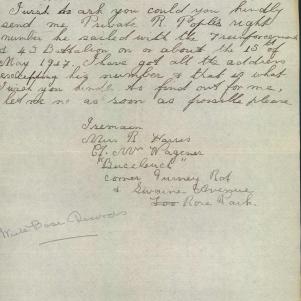 I wish to ask you could you kindly
send me Private R right
number he sailed with the 7 reinforcements
& 43 Battalion on or about the 15th of
May 1917, I have got all the address
excepping his number & that is what
I wish you kindly to find out for me,
let me no as soon as possible please
I remain
Miss R Harris
C/ Mr Wagener
"Buccleuch"
corner Turney Rd
& Swaine Avenue
Too Rose Park.
Base Records